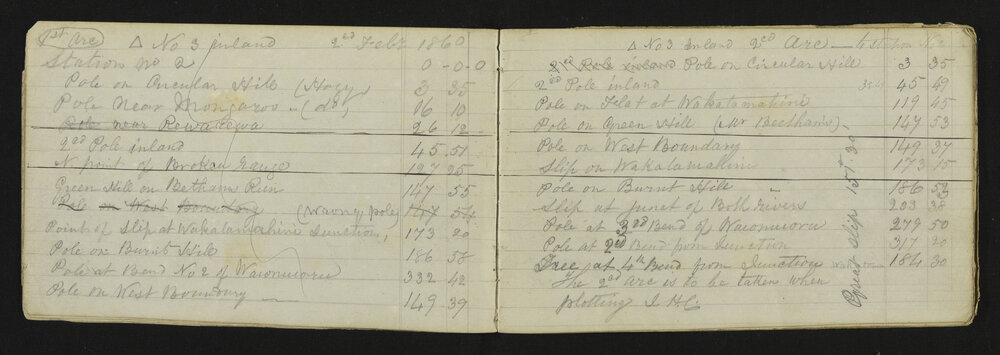 1st Arc △ No 3 inland 2nd Feby 1860
Station No 2 0-0-0
Pole on Circular Hill (Hogg 3 35
Pole Near Mongaroo - (do) 16 10
Pole near Rewarewa 26 12
2nd Pole inland 45.51
N. point of Broken Gauge 127 25
Green Hill on Bethams Run 147 55
Pole on West Boundary (Wrong pole) 147 54
Point of Slip at Wakatamahine Junction, 173 20
Pole on Burnt Hill 186 58
Pole at Bend No 2 of Waronuoru 332 42
Pole on West Boundary — 149 39
△ No 3 Inland 2nd Arc — to station No 2
2nd Pole inland Pole on Circular Hill 3 35
2nd Pole inland 45 49
Pole on Flat at Wakatamahine 119 45
Pole on Green Hill (Mr Beetham's) 147 53
Pole on West Boundary 149 37
Slip on Wakatamahine 173 15
Pole on Burnt Hill 186 53
Slip at junct of Both rivers 203 38
Pole at 3rd Bend of Waronuoru 279 50
Pole at 2nd Bend from Junction 317 20
Tree at 4th Bend from Junction 184 30
The 2nd arc is to be taken when
plotting J. H.C.
Great Slip 157.32